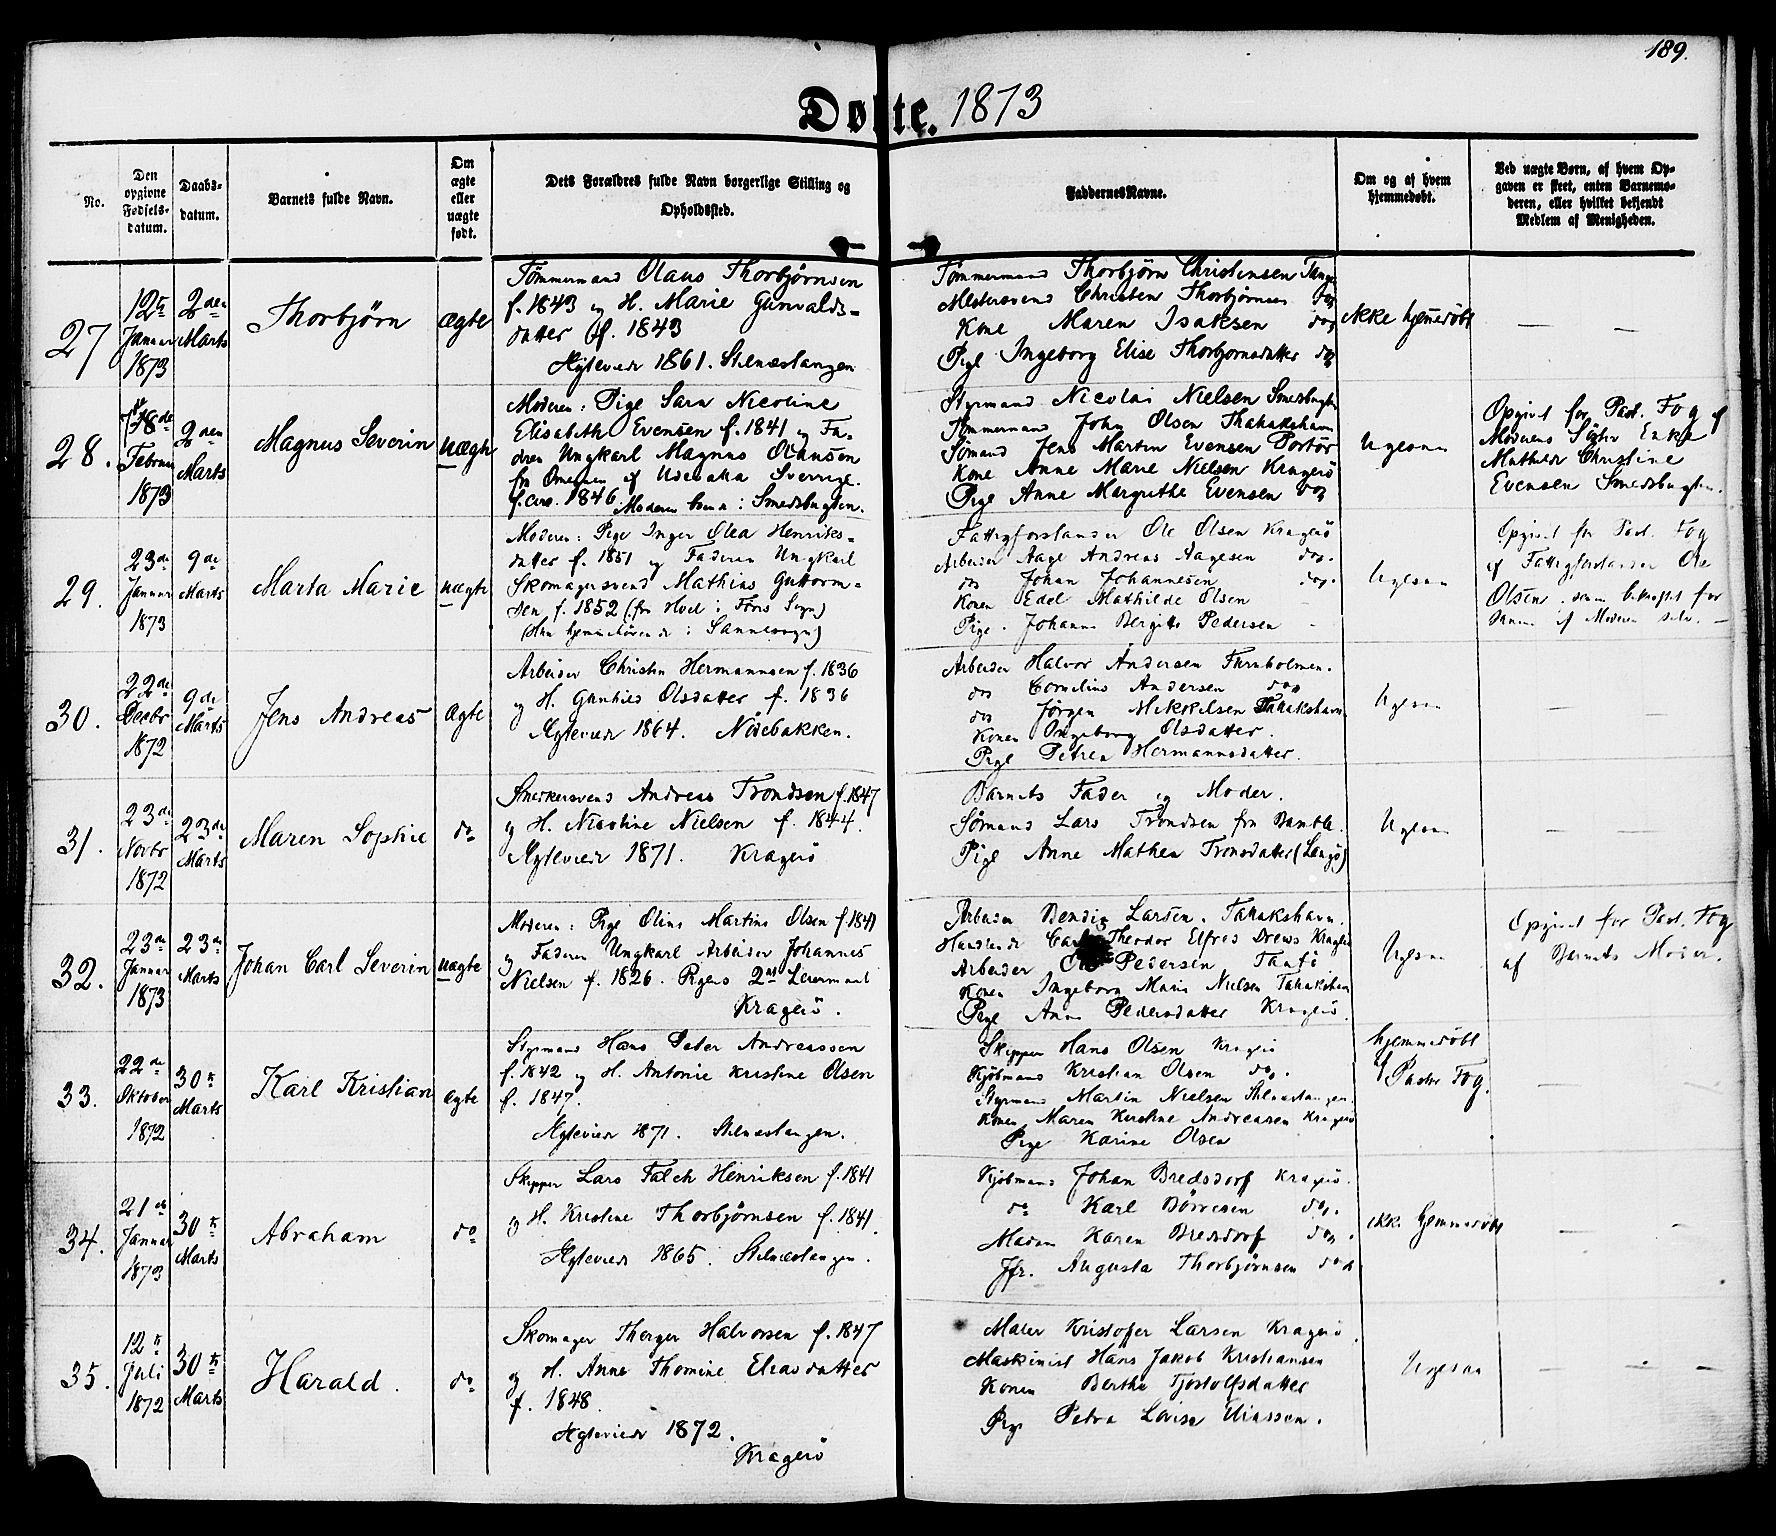 189.
Døbte. 1873
No.
Den opgivne Fødsels-datum.
Daabs-datum.
Barnets fulde Navn.
Om ægte eller uægte født.
Dets Forældres fulde Navn borgerlige Stilling og Opholdssted.
Faddernes Navne.
Om og af hvem hjemmedøbt.
Ved uægte Børn, af hvem Opgaven er skeet, enten Barnemoderen, eller hvilket bekjendt Medlem af Menigheden.
27
12te Januar 1873
2den Marts
Thorbjörn
ægte
Tömmermand Olaus Thorbjörnsen
f. 1843 og H. Marie Gunvalds-
datter f. 1843
Ægteviede 1861. Stilnæstangen
Tömmermand Thorbjörn Christensen Tangen
Christen Thorbjörnsen do
Kone Maren Isaksen do
Pige Ingeborg Elise Thorbjornsdatter do
ikke hjemmedöbt
— —
28.
18de Februar 1873
2den Marts
Magnus Severin
uægte
Moderen: Pige Sara Nicoline
Elisabeth Evensen f. 1841 og Fa-
deren Ungkarl Magnus Olausson
fra Omegnen af Udevalla Sverrige.
f. circ. 1846. Moderen boende: Smedsbugten.
Styrmand Nicolai Nielsen Smedsbugten
Tömmermand John Olsen Tahakshavn
Sömand Jens Martin Evensen Portör
Kone Anne Marie Nielsen Kragerö
Pige Anne Margrethe Evensen do
Ligesaa
Opgivet for Past. Fog af
Moderens Söster Enke
Mathilde Christine
Evensen Smedsbugten.
29.
23de Januar 1873
9de Marts
Marta Marie
uægte
Moderen: Pige Inger Olea Henriks-
datter f. 1851 og Faderen Ungkarl
Skomagersvend Mathias Guttorm-
sen f. 1852 (fra Hvel i Föris Sogn)
(Hun hjemmehörende i Sannesogn)
Fattigforstander Ole Olsen Kragerö
Arbeider Aage Andreas Aagesen do.
do Johan Johannesen do.
Konen Edel Mathilde Olsen
Pige. Johanne Bergitte Pedersen
Ligesaa
Opgivet for Past. Fog
af Fattigforstander Ole
Olsen, senere bekræftet for
samme af Moderen selv. —
30.
22de Decbr 1872
9de Marts
Jens Andreas
Ægte
Arbeider Christen Hermannsen f. 1836
og H. Gunhild Olsdatter f. 1836
Ægteviede 1864. Nödebakken.
Arbeider Halvor Andersen Furuholmen.
do Cornelius Andersen do
do Jörgen Mikkelsen Tahakshavn
Konen Ingeborg Olsdatter.
Pige Petrea Hermannsdatter.
Ligesaa
— —
31.
23de Novbr 1872
23de Marts
Maren Sophie
do
Snedkersvend Andreas Trondsen f. 1847
og H. Nicoline Nielsen f. 1844.
Ægteviede 1871. Kragerö
Barnets Fader og Moder.
Sömand Lars Trondsen fra Bamble.
Pige Anne Mathea Tronsdatter (Langö)
Ligesaa
— —
32.
23de Januar 1873
23de Marts
Johan Carl Severin
uægte
Moderen: Pige Oline Martine Olsen f. 1841
og Faderen Ungkarl Arbeider Johannes
Nielsen f. 1826. Pigens 2det Leiermaal
Kragerö.
Arbeider Bendix Larsen. Tahakshavn.
Handlende Carl Theodor Elfred Drews Kragerö
Arbeider Ole Pedersen
Konen Ingeborg Marie Nielsen Tahakshavn
Pige Anne Pedersdatter Kragerö.
Ligesaa
Opgivet for Past. Fog
af Barnets Moder.
33.
22de Oktober 1872
30te Marts
Karl Kristian
ægte
Styrmand Hans Peter Andreassen
f. 1842 og H. Antonie Kristine Olsen
f. 1847.
Ægteviede 1871. Stilnæstangen.
Skipper Hans Olsen Kragerö
Kjöbmand Kristian Olsen do.
Styrmand Martin Nielsen Stilnæstangen
Konen Maren Kirstine Andreasen Kragerö
Pige Karine Olsen
hjemmedöbt
af Pastor Fog.
—
34.
21de Januar 1873
30te Marts
Abraham
do
Skipper Lars Falch Henriksen f. 1841
og H. Kristine Thorbjörnsen f. 1841.
Ægteviede 1865. Stilnæstangen.
Kjöbmand Johan Bredsdorf Kragerö.
do Karl Börresen do.
Madam Karen Bredsdorf do.
Jfr. Augusta Thorbjörnsen do
ikke hjemmedöbt
— —
35.
12te Juli 1872
30te Marts
Harald.
do
Skomager Therger Halvorsen f. 1847
og H. Anne Thomine Eliasdatter
f. 1848.
Ægteviede 1872.
Kragerö
Maler Kristofer Larsen Kragerö.
Maskinist Hans Jakob Kristiansen
Konen Berthe Tjostolfsdatter
Pige Petra Lovise Eliassen.
Ligesaa
— —